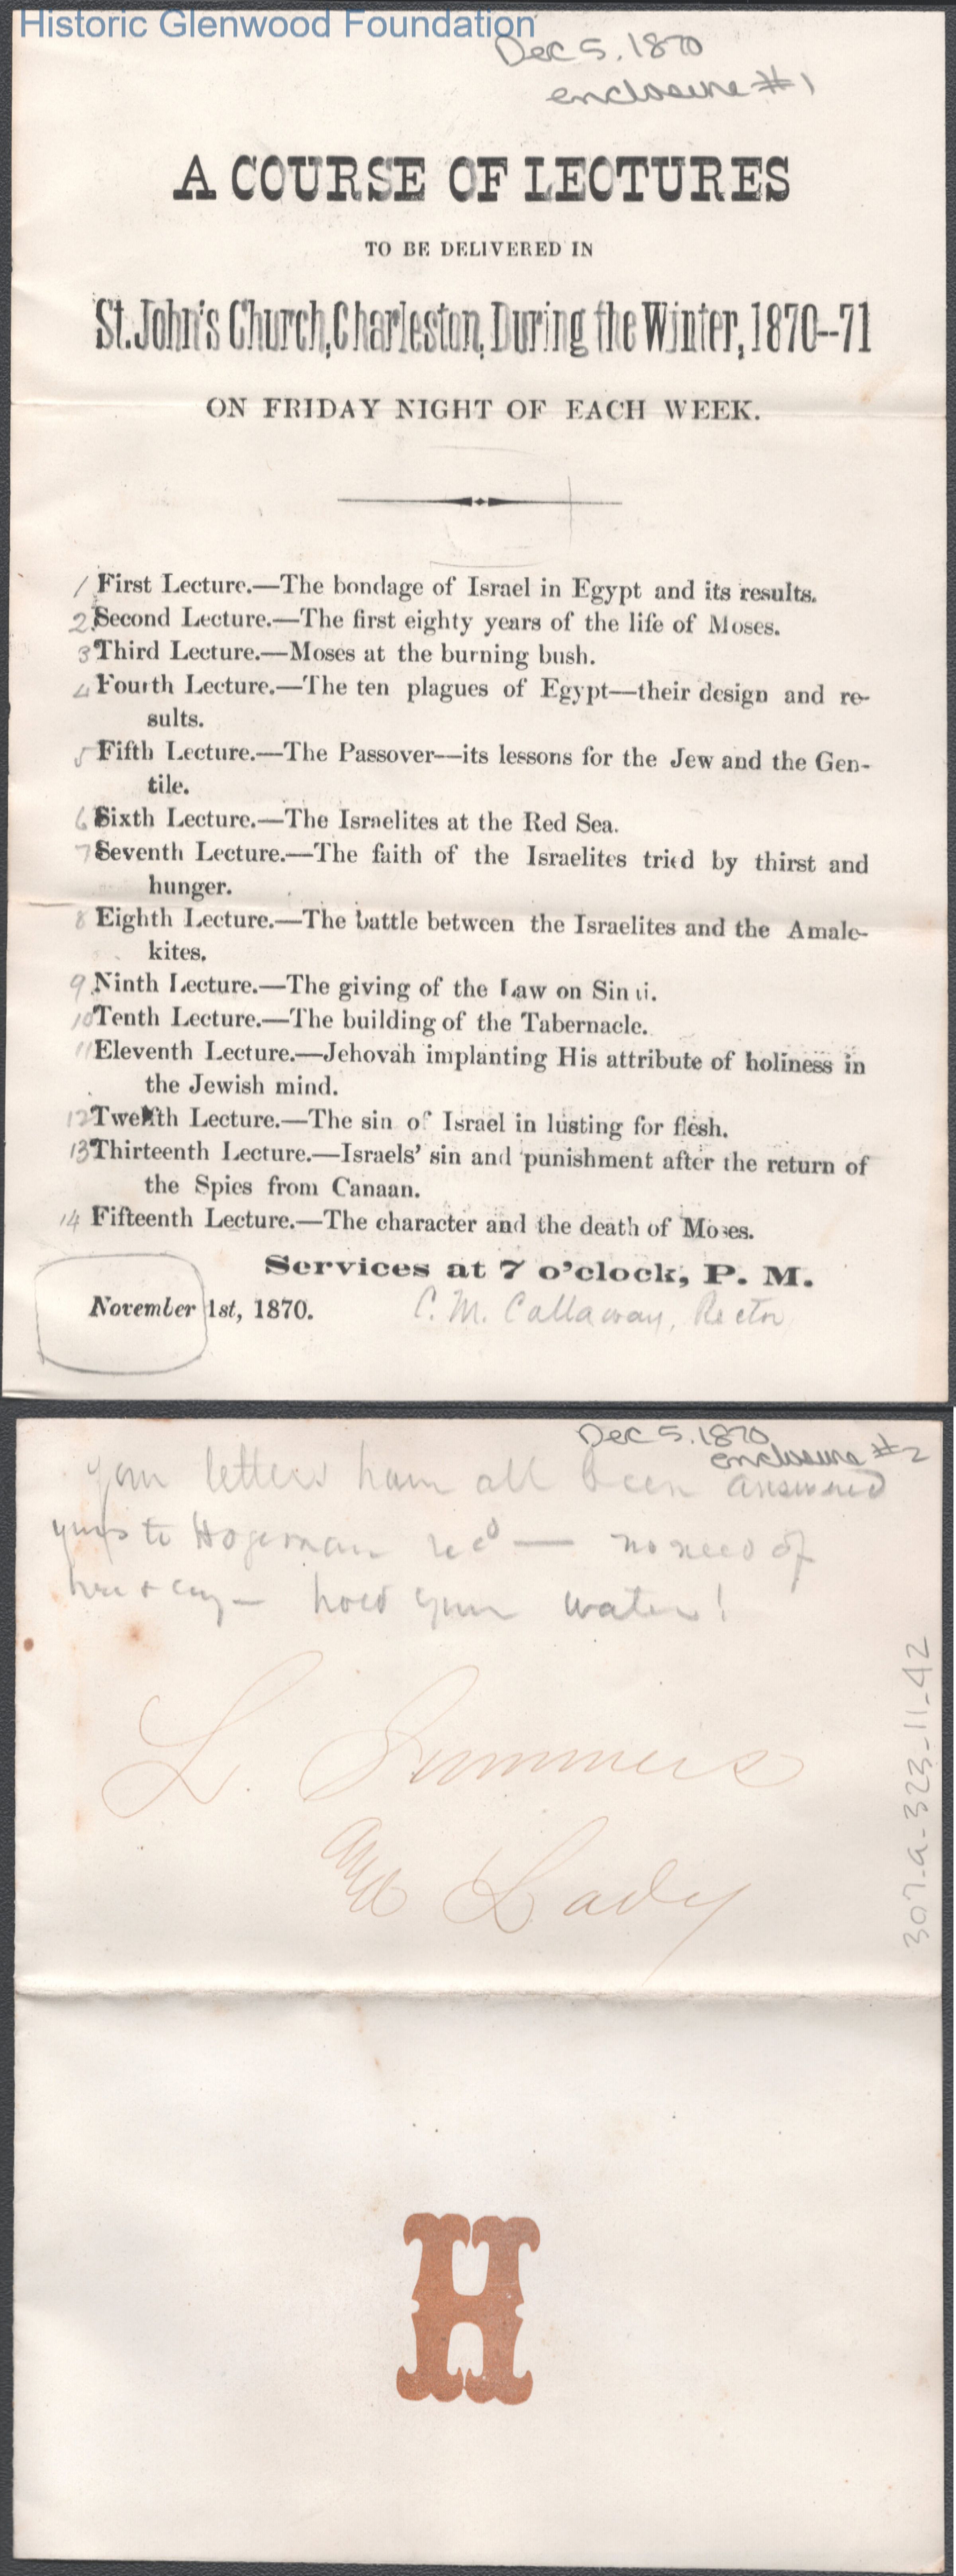 Historic Glenwood Foundation
Dec 5, 1870
enclosure #1
A COURSE OF LECTURES
TO BE DELIVERED IN
St. John's Church, Charleston, During the Winter, 1870--71
ON FRIDAY NIGHT OF EACH WEEK.
1 First Lecture.—The bondage of Israel in Egypt and its results.
2 Second Lecture.—The first eighty years of the life of Moses.
3 Third Lecture.—Moses at the burning bush.
4 Fourth Lecture.—The ten plagues of Egypt—their design and re-
sults.
5 Fifth Lecture.—The Passover—its lessons for the Jew and the Gen-
tile.
6 Sixth Lecture.—The Israelites at the Red Sea.
7 Seventh Lecture.—The faith of the Israelites tried by thirst and
hunger.
8 Eighth Lecture.—The battle between the Israelites and the Amale-
kites.
9 Ninth Lecture.—The giving of the Law on Sinai.
10 Tenth Lecture.—The building of the Tabernacle.
11 Eleventh Lecture.—Jehovah implanting His attribute of holiness in
the Jewish mind.
12 Twelfth Lecture.—The sin of Israel in lusting for flesh.
13 Thirteenth Lecture.—Israels' sin and punishment after the return of
the Spies from Canaan.
14 Fifteenth Lecture.—The character and the death of Moses.
Services at 7 o'clock, P. M.
November 1st, 1870.
C. M. Callaway, Rector
Dec 5, 1870
enclosure #2
your letters have all been answered
yours to Hogeman recd — no need of
hold your water!
L. Summers
and Lady
307-a-323-11-42
H